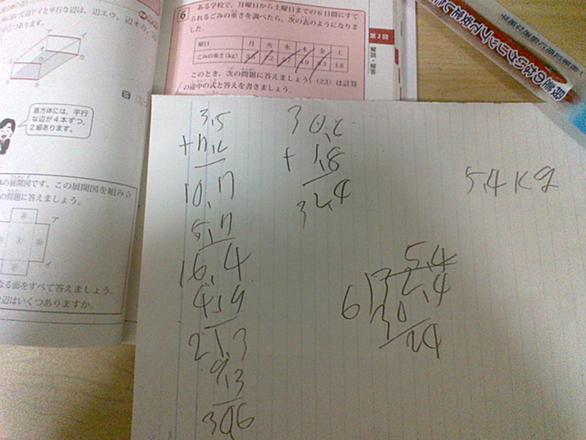 第2回
ある学校で、月曜日から土曜日までの6日間にすて
られるごみの重さを調べたら、次の表のようになりま
した。
曜日 月 火 水 木 金 土
ごみの重さ(kg) 1.8
このとき、次の問題に答えましょう。(23)は計算
の途中の式と答えを書きましょう。
直方体には、平行
な辺が4本ずつ、
3組あります。
の展開図です。この展開図を組み
の問題に答えましょう。
なる面をすべて答えましょう。
辺はいくつありますか。
3.5
+ 7.2
10.7
5.7
16.4
4.9
21.3
9.3
30.6
30.6
+ 1.8
32.4
5.4kg
5.4
6)32.4
30
24